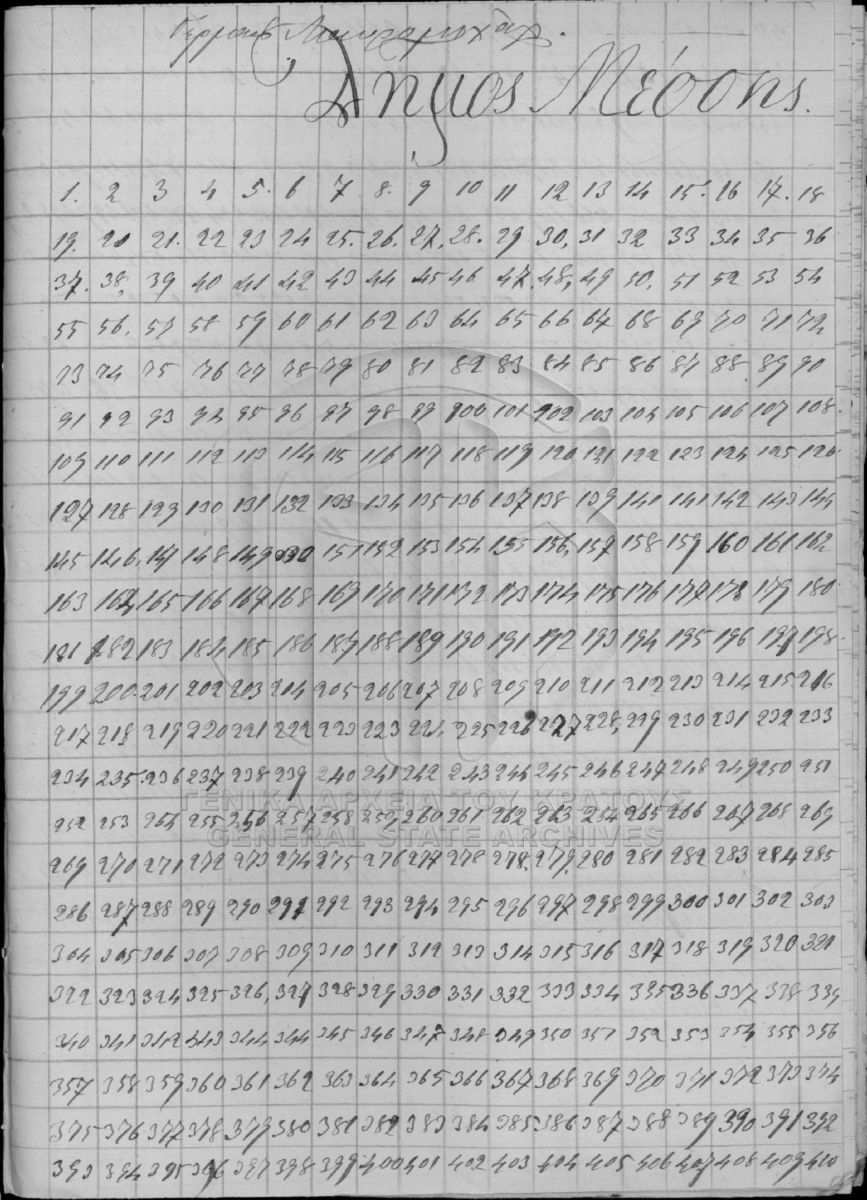 Δήμος Μέσσης.
1. 2 3 4 5. 6 7 8. 9 10 11 12 13 14 15. 16 17. 18
19. 20 21. 22 23 24 25. 26. 27. 28. 29 30. 31 32 33 34 35 36
37. 38. 39 40 41 42 43 44 45 46 47. 48. 49 50. 51 52 53 54
55 56. 57 58 59 60 61 62 63 64 65 66 67 68 69 70 71 72
73 74 75 76 77 78 79 80 81 82 83 84 85 86 87 88 89 90
91 92 93 94 95 96 97 98 99 100 101 102 103 104 105 106 107 108.
109 110 111 112 113 114 115 116 117 118 119 120 121 122 123 124 125 126
127 128 129 130 131 132 133 134 135 136 137 138 139 140 141 142 143 144
145 146. 147 148 149 150 151 152 153 154 155 156. 157 158 159 160 161 162
163 164 165 166 167 168 169 170 171 172 173 174 175 176 177 178 179 180
181 182 183 184 185 186 187 188 189 190 191 192 193 194 195 196 197 198.
199 200. 201 202 203 204 205 206 207 208 209 210 211 212 213 214 215 216
217 218 219 220 221 222 223 223 224 225 226 227 228. 229 230 231 232 233
234 235. 236 237 238 239 240 241 242 243 244 245 246 247 248 249 250 251
252 253 254 255 256 257 258 259 260 261 262 263 264 265 266 267 268 269
269 270 271 272 273 274 275 276 277 278 278. 279. 280 281 282 283 284 285
286 287 288 289 290 291 292 293 294 295 296 297 298 299 300 301 302 303
304 305 306 307 308 309 310 311 312 313 314 315 316 317 318 319 320 321
322 323 324 325 326. 327 328 329 330 331 332 333 334 335 336 337 338 339
340 341 342 343 344 344 345 346 347 348 349 350 351 352 353 354 355 356
357 358 359 360 361 362 363 364 365 366 367 368 369 370 371 372 373 374
375 376 377 378 379 380 381 382 383 384 385 386 387 388 389 390 391 392
393 394 395 396 397 398 399 400 401 402 403 404 405 406 407 408 409 410
ΓΕΝΙΚΑ ΑΡΧΕΙΑ ΤΟΥ ΚΡΑΤΟΥΣ
GENERAL STATE ARCHIVES